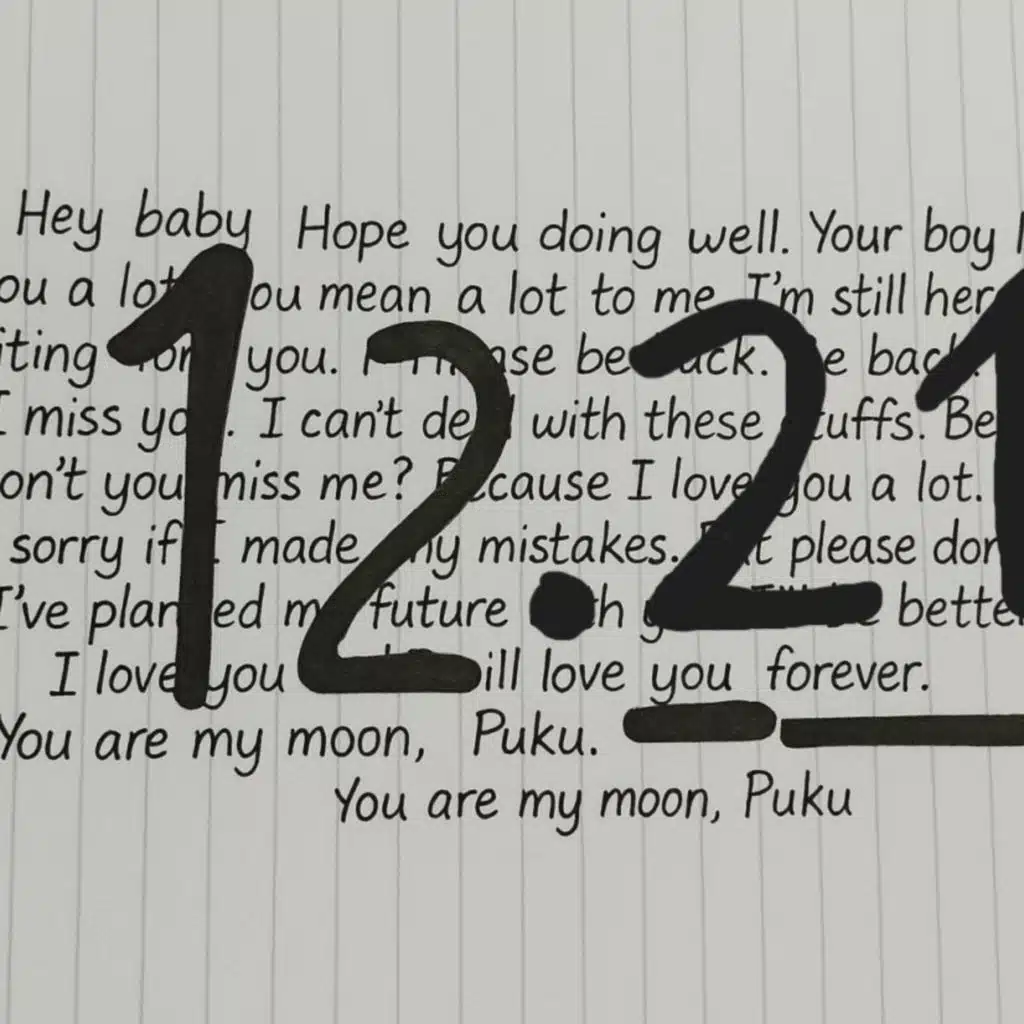 Hey baby Hope you doing well. Your boy
ou a lot ou mean a lot to me I'm still her
iting for you. be ck. e back
I miss yo . I can't de with these tuffs. Be
on't you miss me? Because I love you a lot.
sorry if I made ny mistakes. t please don
I've planned m future h better
I love you ill love you forever.
You are my moon, Puku.
You are my moon, Puku
12.21